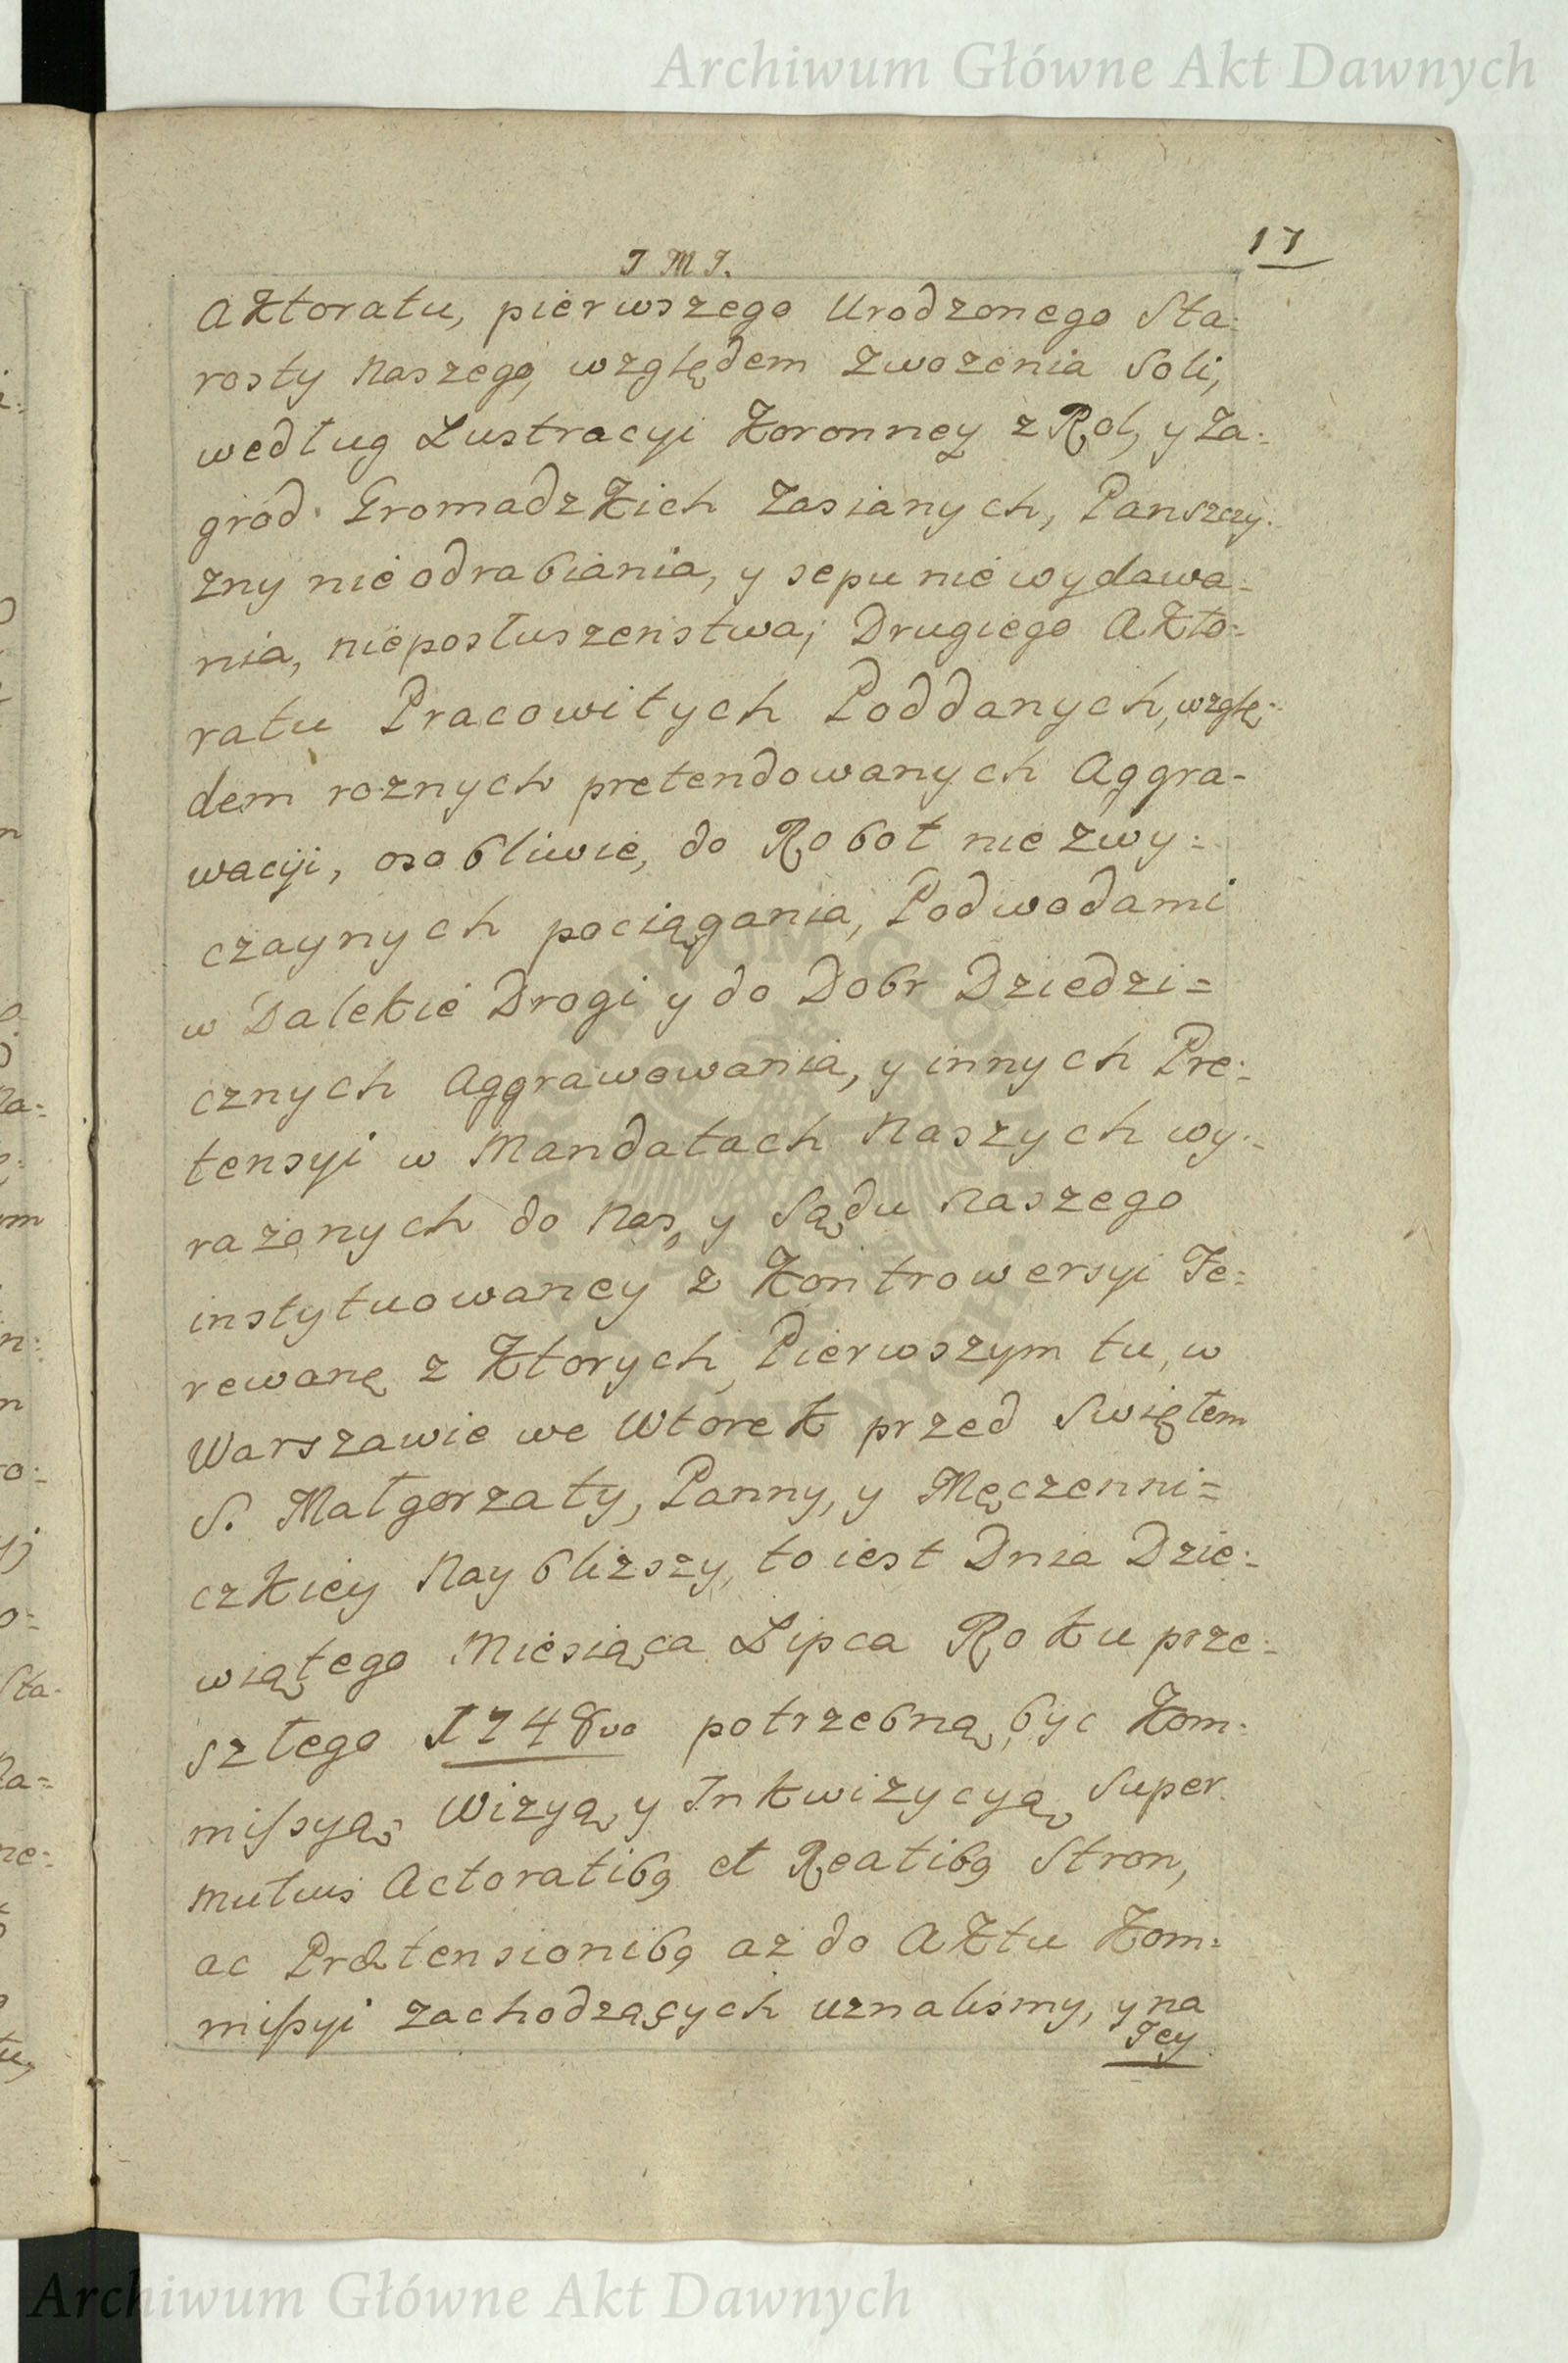 Archiwum Główne Akt Dawnych
17
J M J.
Aktoratu, pierwszego Urodzonego Sta:
rosty Naszego, względem Zwożenia Soli,
według Lustracyi Koronney z Rol, y Za:
gród Gromadzkich Zasianych, Panszczy:
zny nie odrabiania, y sepu nie wydawa:
nia, nieposłuszeństwa; Drugiego Akto:
ratu Pracowitych Poddanych, wzglę:
dem roznych pretendowanych Aggra-
wacyi, osobliwie, do Robot nie zwy:
czaynych pociągania, Podwodami
w Dalekie Drogi y do Dobr Dziedzi=
cznych Aggrawowania, y innych Pre:
tensyi w Mandatach Naszych wy:
rażonych do Nas, y Sądu Naszego
instytuowaney z Kontrowersyi Fe:
rowanę z Ktorych Pierwszym tu, w
Warszawie we Wtorek przed Swiętem
S. Małgorzaty, Panny, y Męczenni=
czkiey Naybliższy, to iest Dnia Dzie:
wiątego Miesiąca Lipca Roku prze:
szłego 1748vo potrzebną, byc Kom:
missyą, Wizyą, y Inkwizycyą Super
mutuis Actoratibq et Reatibq Stron,
ac Prætensionibq aż do Aktu Kom:
missyi zachodzących uznalismy, y na
Tey
Archiwum Główne Akt Dawnych